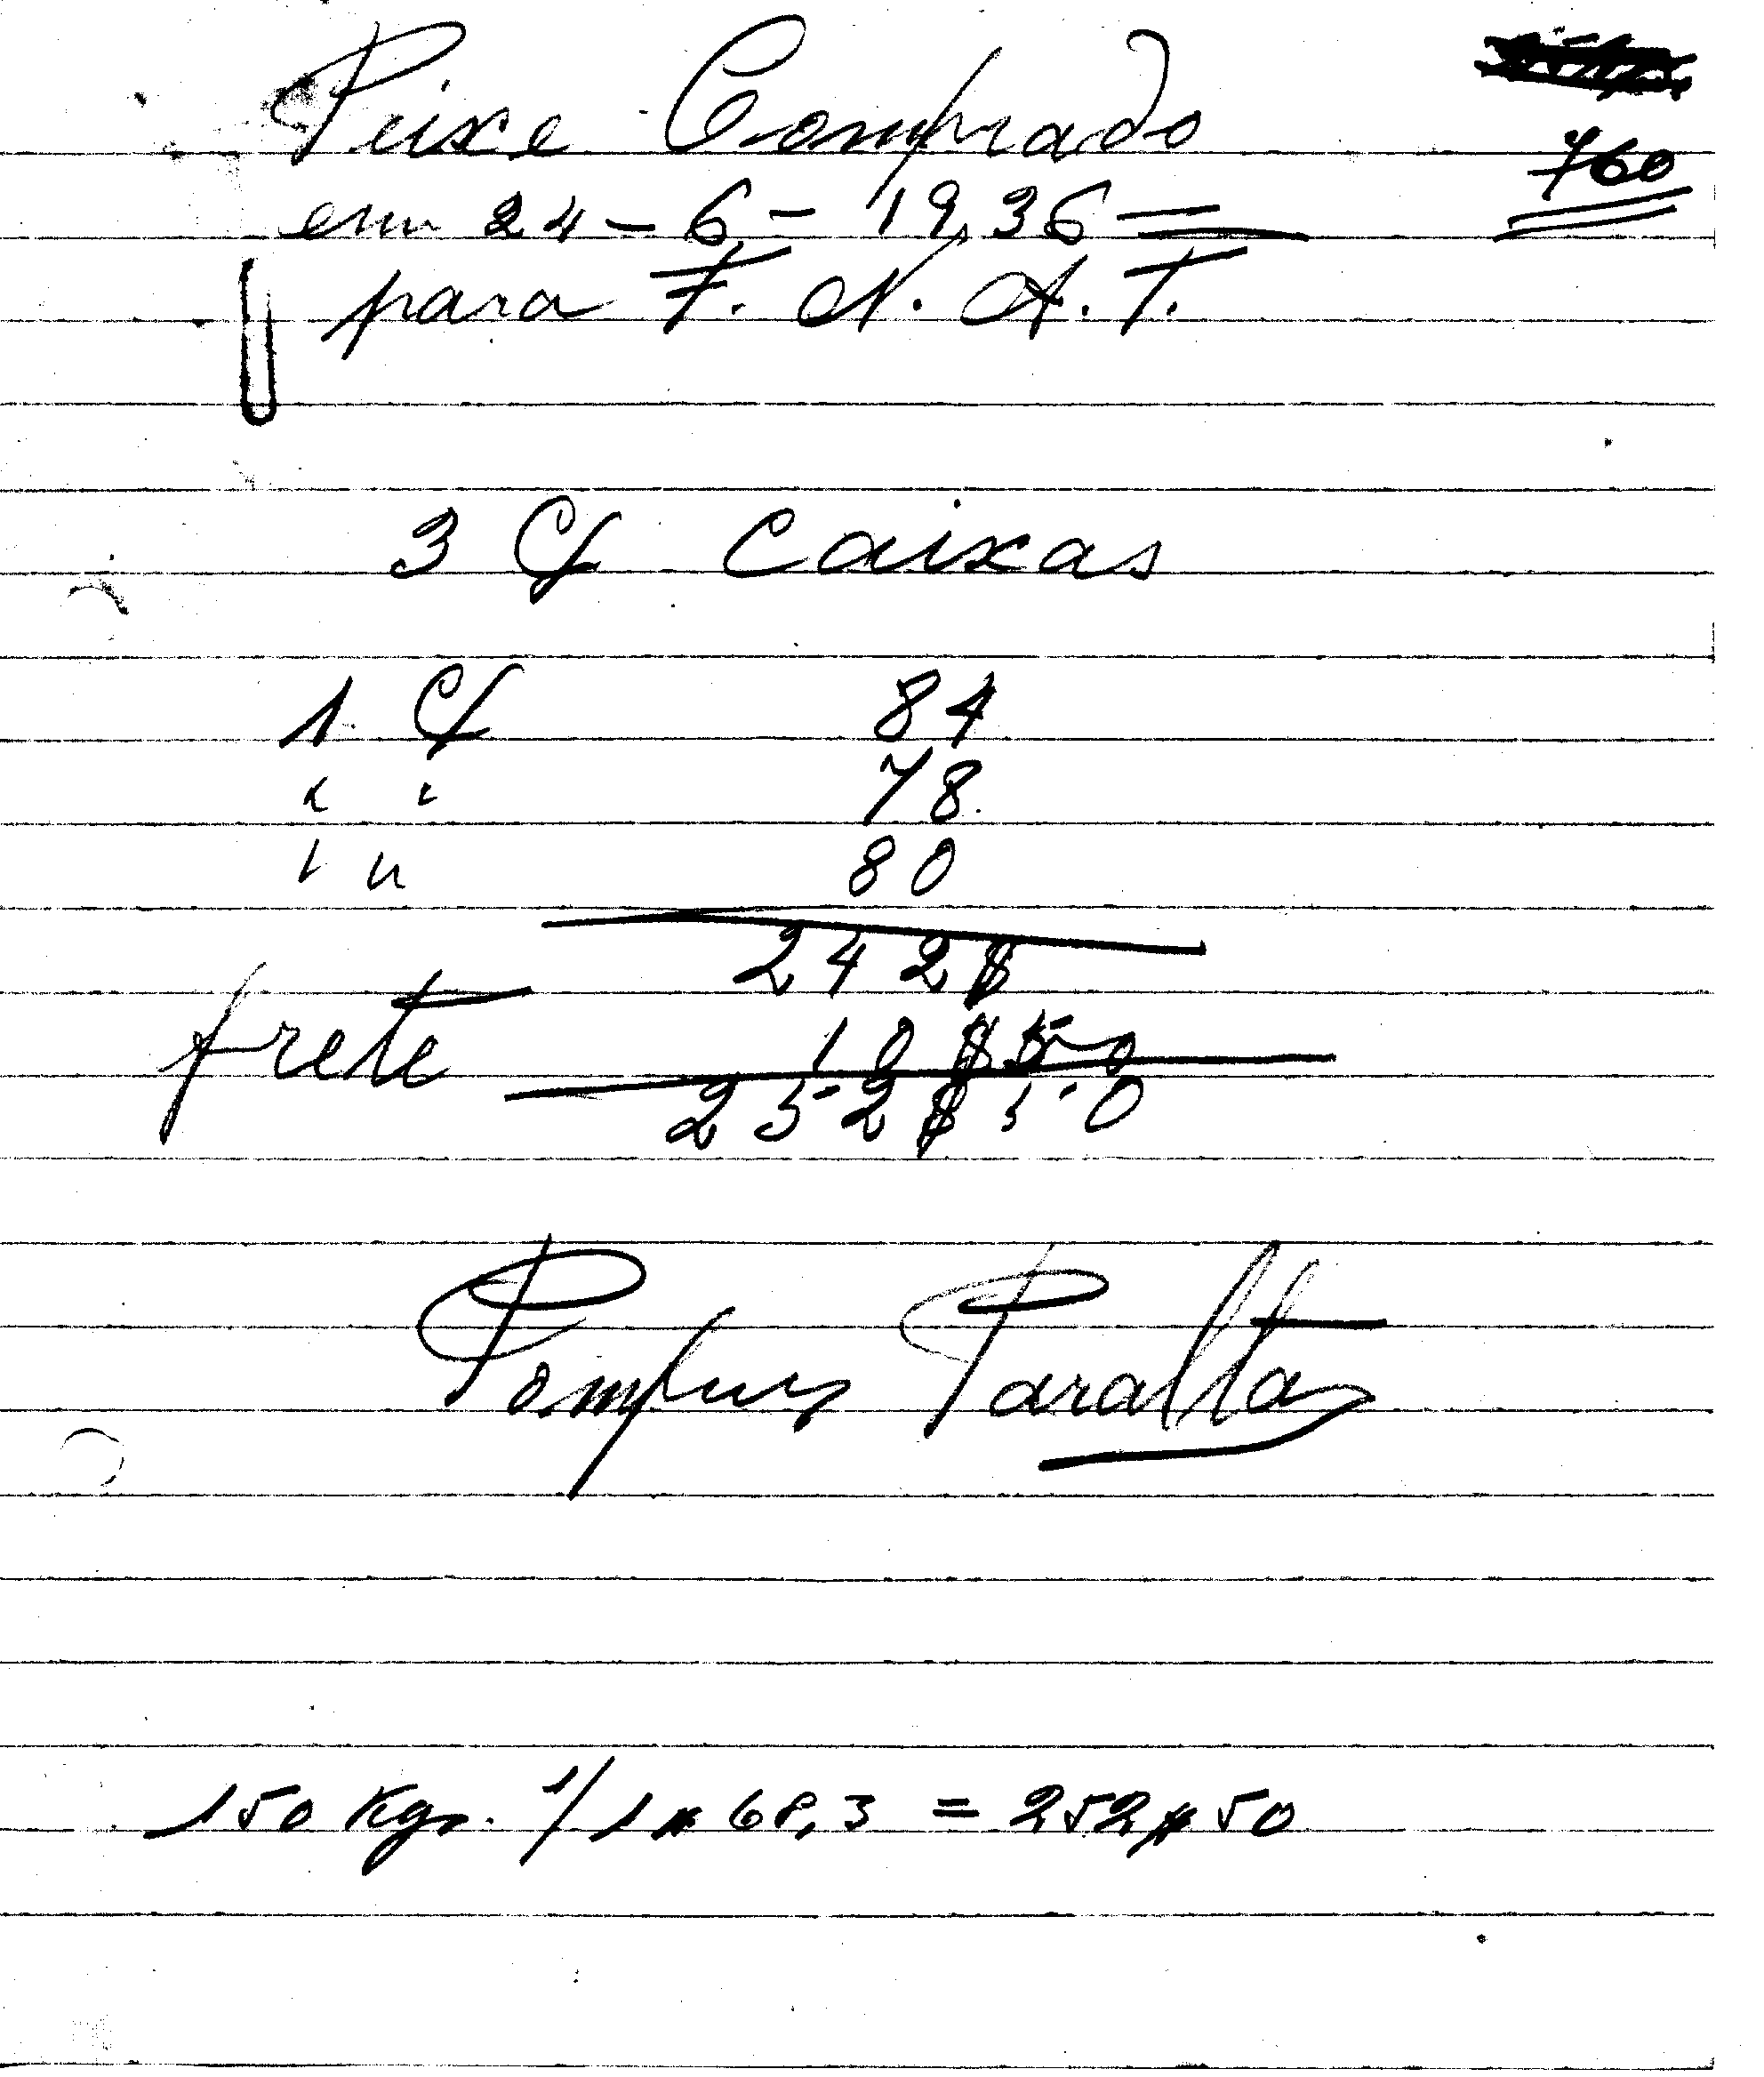 760
Peixe Comprado
em 24-6-1936=
para F. N. A. T.
3 C/ Caixas
1 C/ 84
" " 78
" " 80
242$
frete 10$50
252$50
Paralta
150 Kgs. a/ 1$68,3 = 252$50